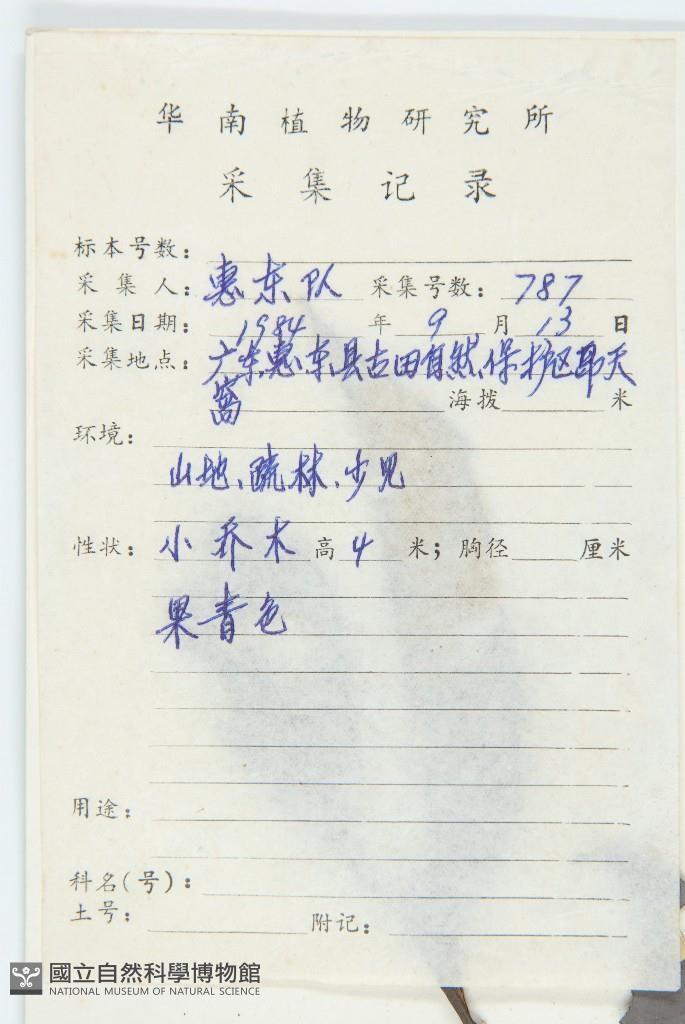 华南植物研究所
采集记录
标本号数：
采集人：惠东队 采集号数：787
采集日期：1984年9月13日
采集地点：广东惠东县古田自然保护区昂天
窝 海拨 米
环境：
山地、疏林、少见
性状：小乔木高4米；胸径 厘米
果青色
用途：
科名(号)：
土号： 附记：
國立自然科學博物館
NATIONAL MUSEUM OF NATURAL SCIENCE